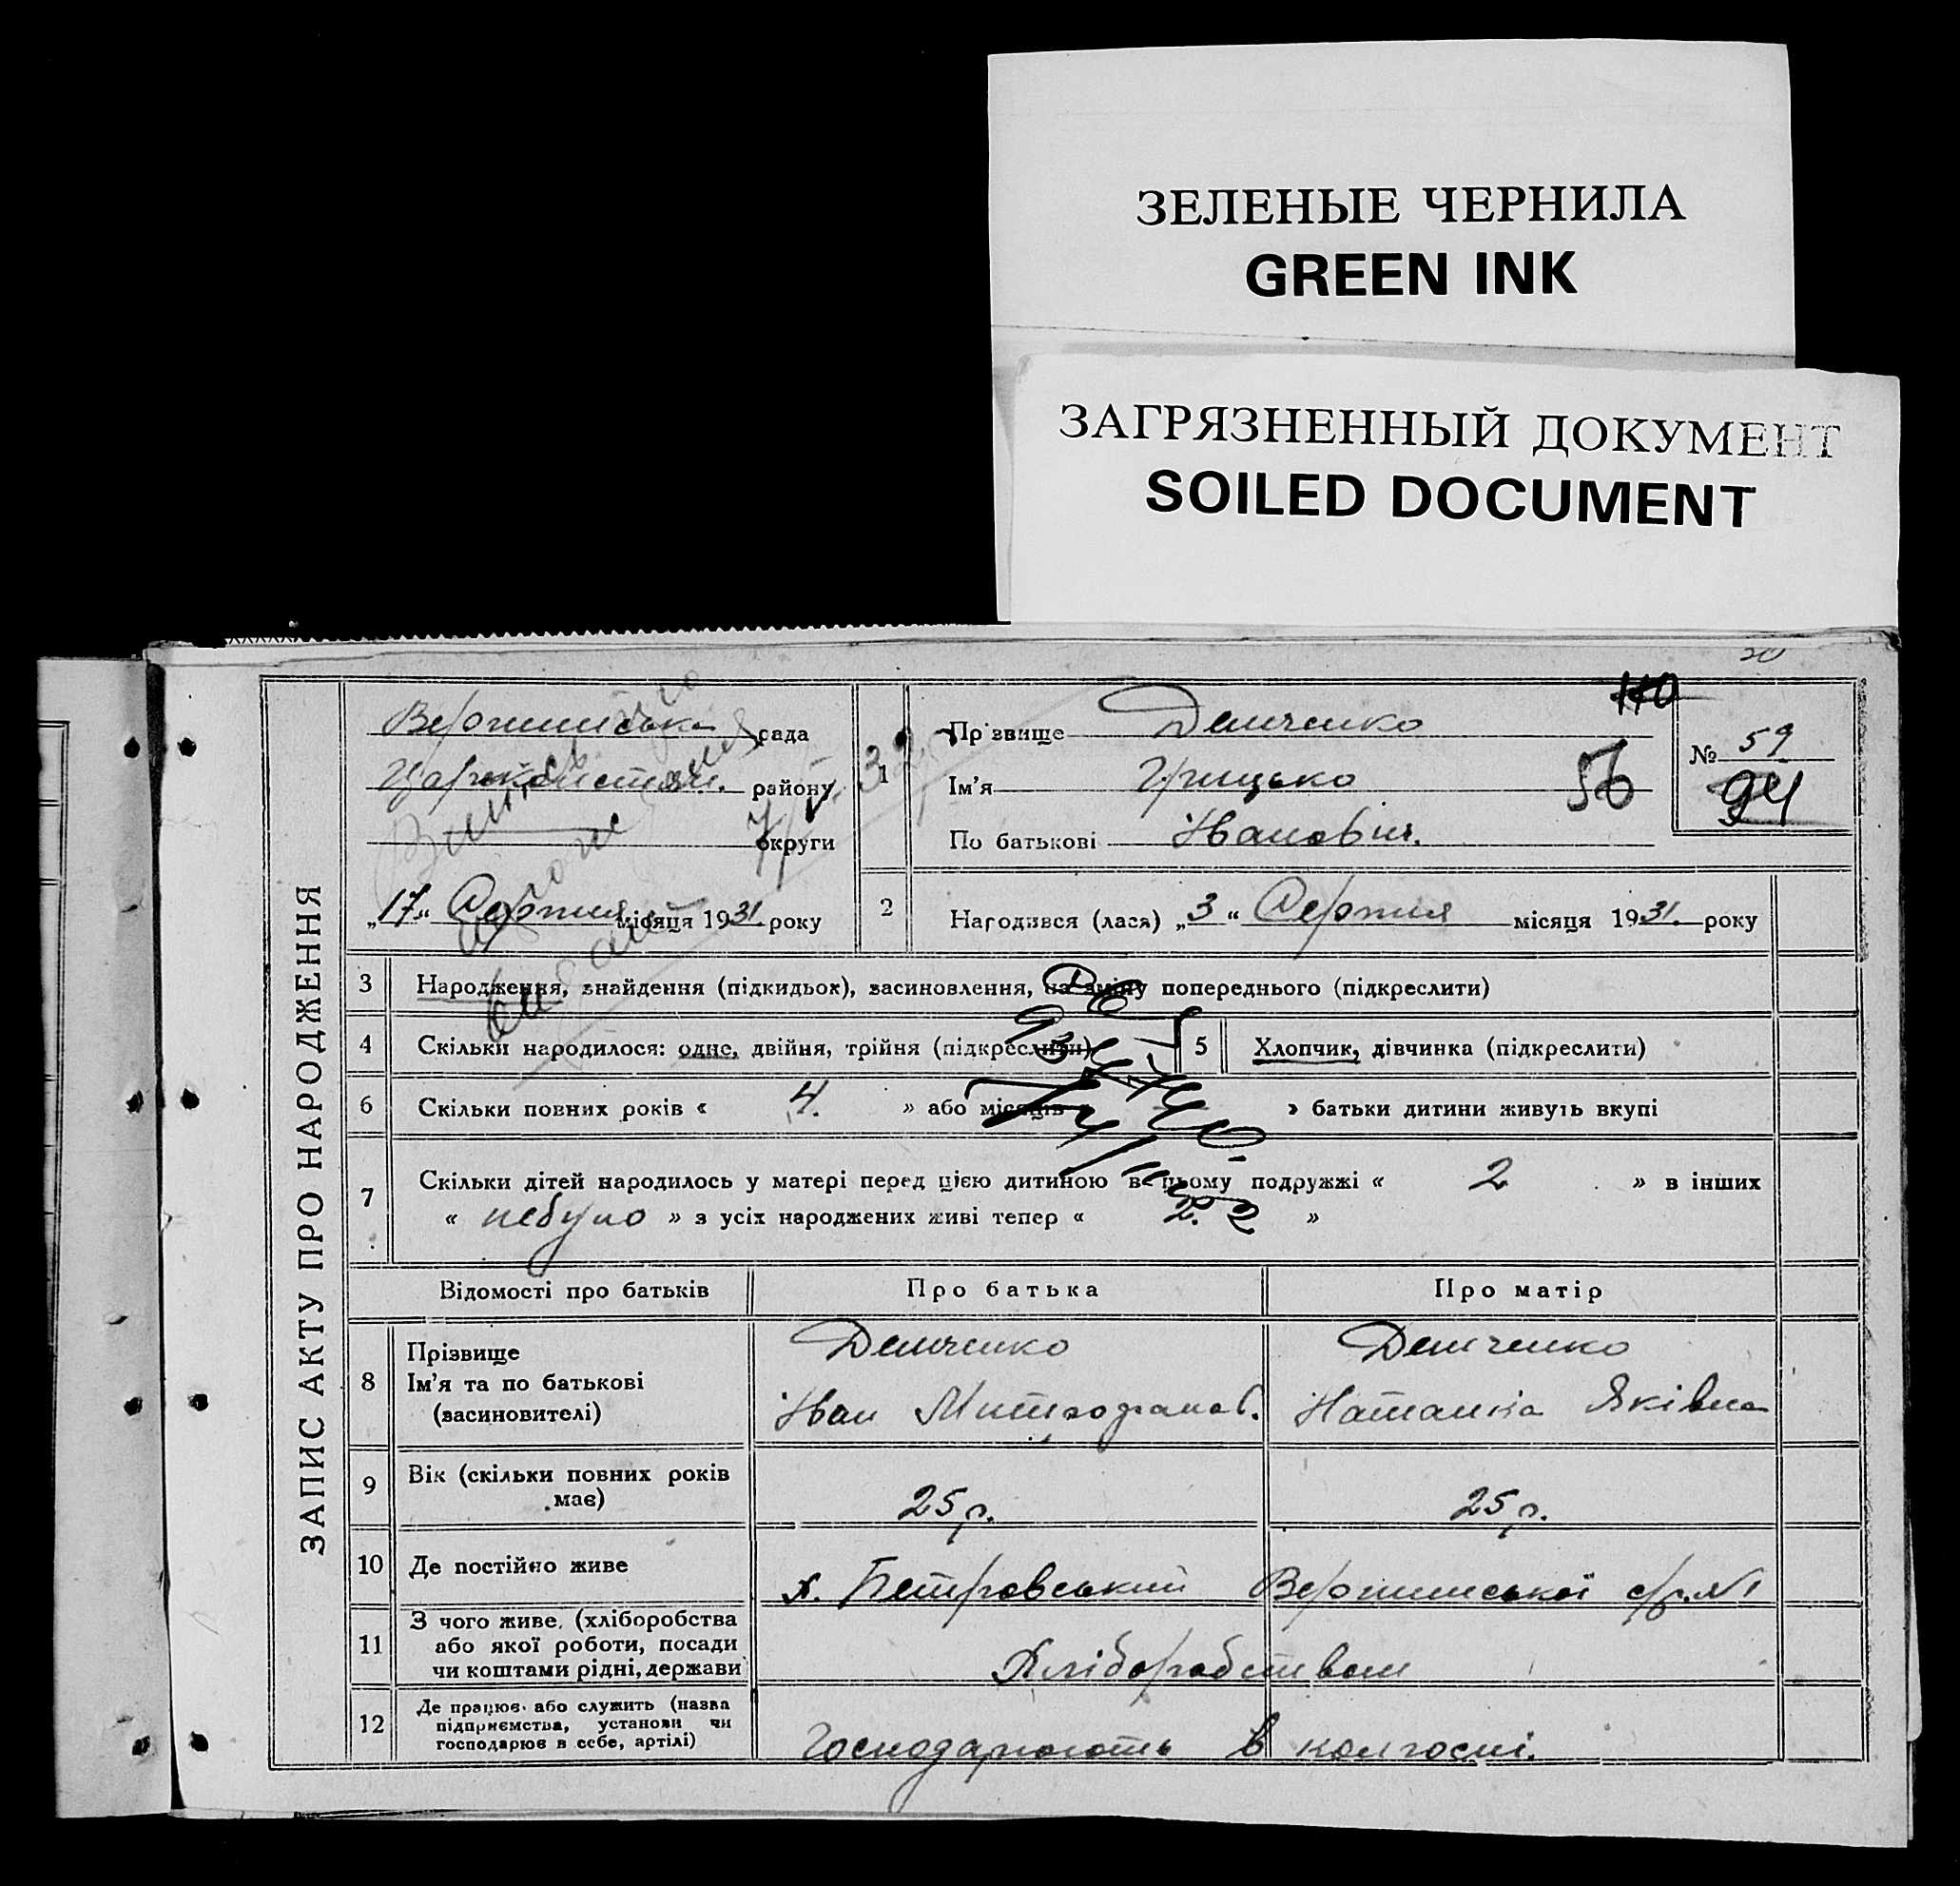 ЗЕЛЕНЫЕ ЧЕРНИЛА
GREEN INK
ЗАГРЯЗНЕННЫЙ ДОКУМЕНТ
SOILED DOCUMENT
20
ЗАПИС АКТУ ПРО НАРОДЖЕННЯ
рада
району
округи
„17“ Серпня місяця 1931 року
110
1 Прізвище Демченко
Ім'я Грицько
По батькові Іванович.
56
№ 59
94
2 Народився (лася) „3“ Серпня місяця 1931. року
3 Народження, знайдення (підкидьок), засиновлення, на зміну попереднього (підкреслити)
4 Скільки народилося: одне, двійня, трійня (підкреслити)
5 Хлопчик, дівчинка (підкреслити)
6 Скільки повних років « 4. » або місяців « — » батьки дитини живуть вкупі
7 Скільки дітей народилось у матері перед цією дитиною в цьому подружжі « 2 » в інших
« небуло » з усіх народжених живі тепер « 2. »
Відомості про батьків Про батька Про матір
8 Прізвище
Ім'я та по батькові
(засиновителі)
Демченко
Іван
Демченко
Наталка Яківна
9 Вік (скільки повних років
має)
25 р. 25 р.
10 Де постійно живе х. Петровський
11 З чого живе, (хліборобства
або якої роботи, посади
чи коштами рідні, держави
Хліборобством
12 Де працює або служить (назва
підприємства, установи чи
господарює в себе, артілі)
Господарюють в колгоспі.